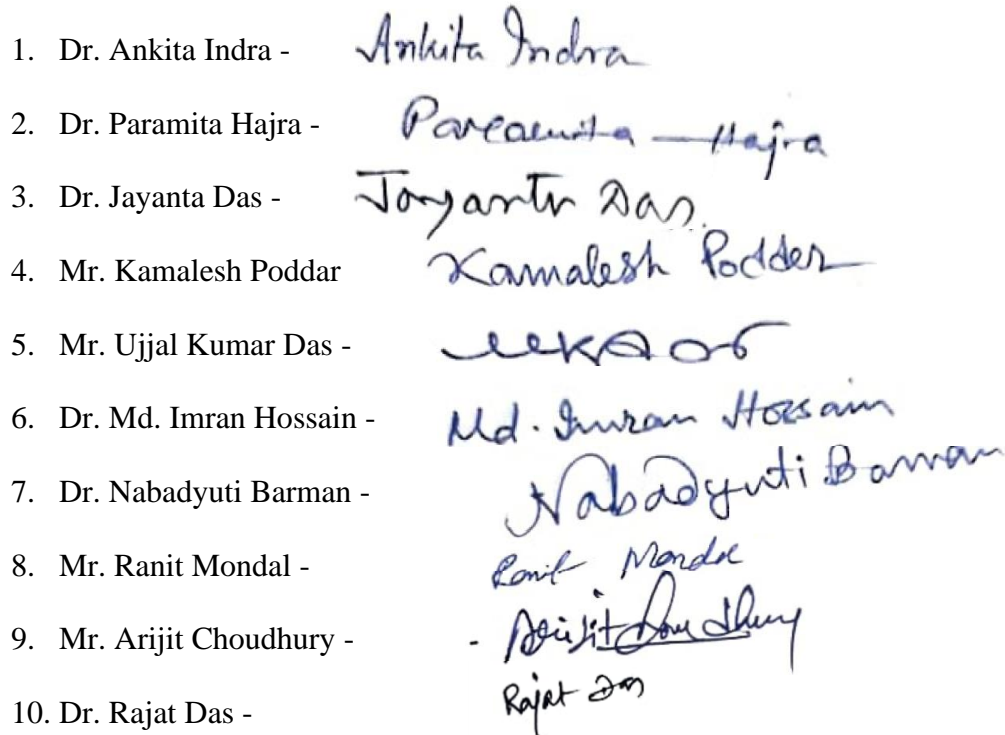 1. Dr. Ankita Indra - Ankita Indra
2. Dr. Paramita Hajra - Paramita Hajra
3. Dr. Jayanta Das - Jayanta Das.
4. Mr. Kamalesh Poddar Kamalesh Podder
5. Mr. Ujjal Kumar Das - UKDas
6. Dr. Md. Imran Hossain - Md. Imran Hossain
7. Dr. Nabadyuti Barman - Nabadyuti Barman
8. Mr. Ranit Mondal - Ranit Mondal
9. Mr. Arijit Choudhury - - Arijit Choudhury
10. Dr. Rajat Das - Rajat Das